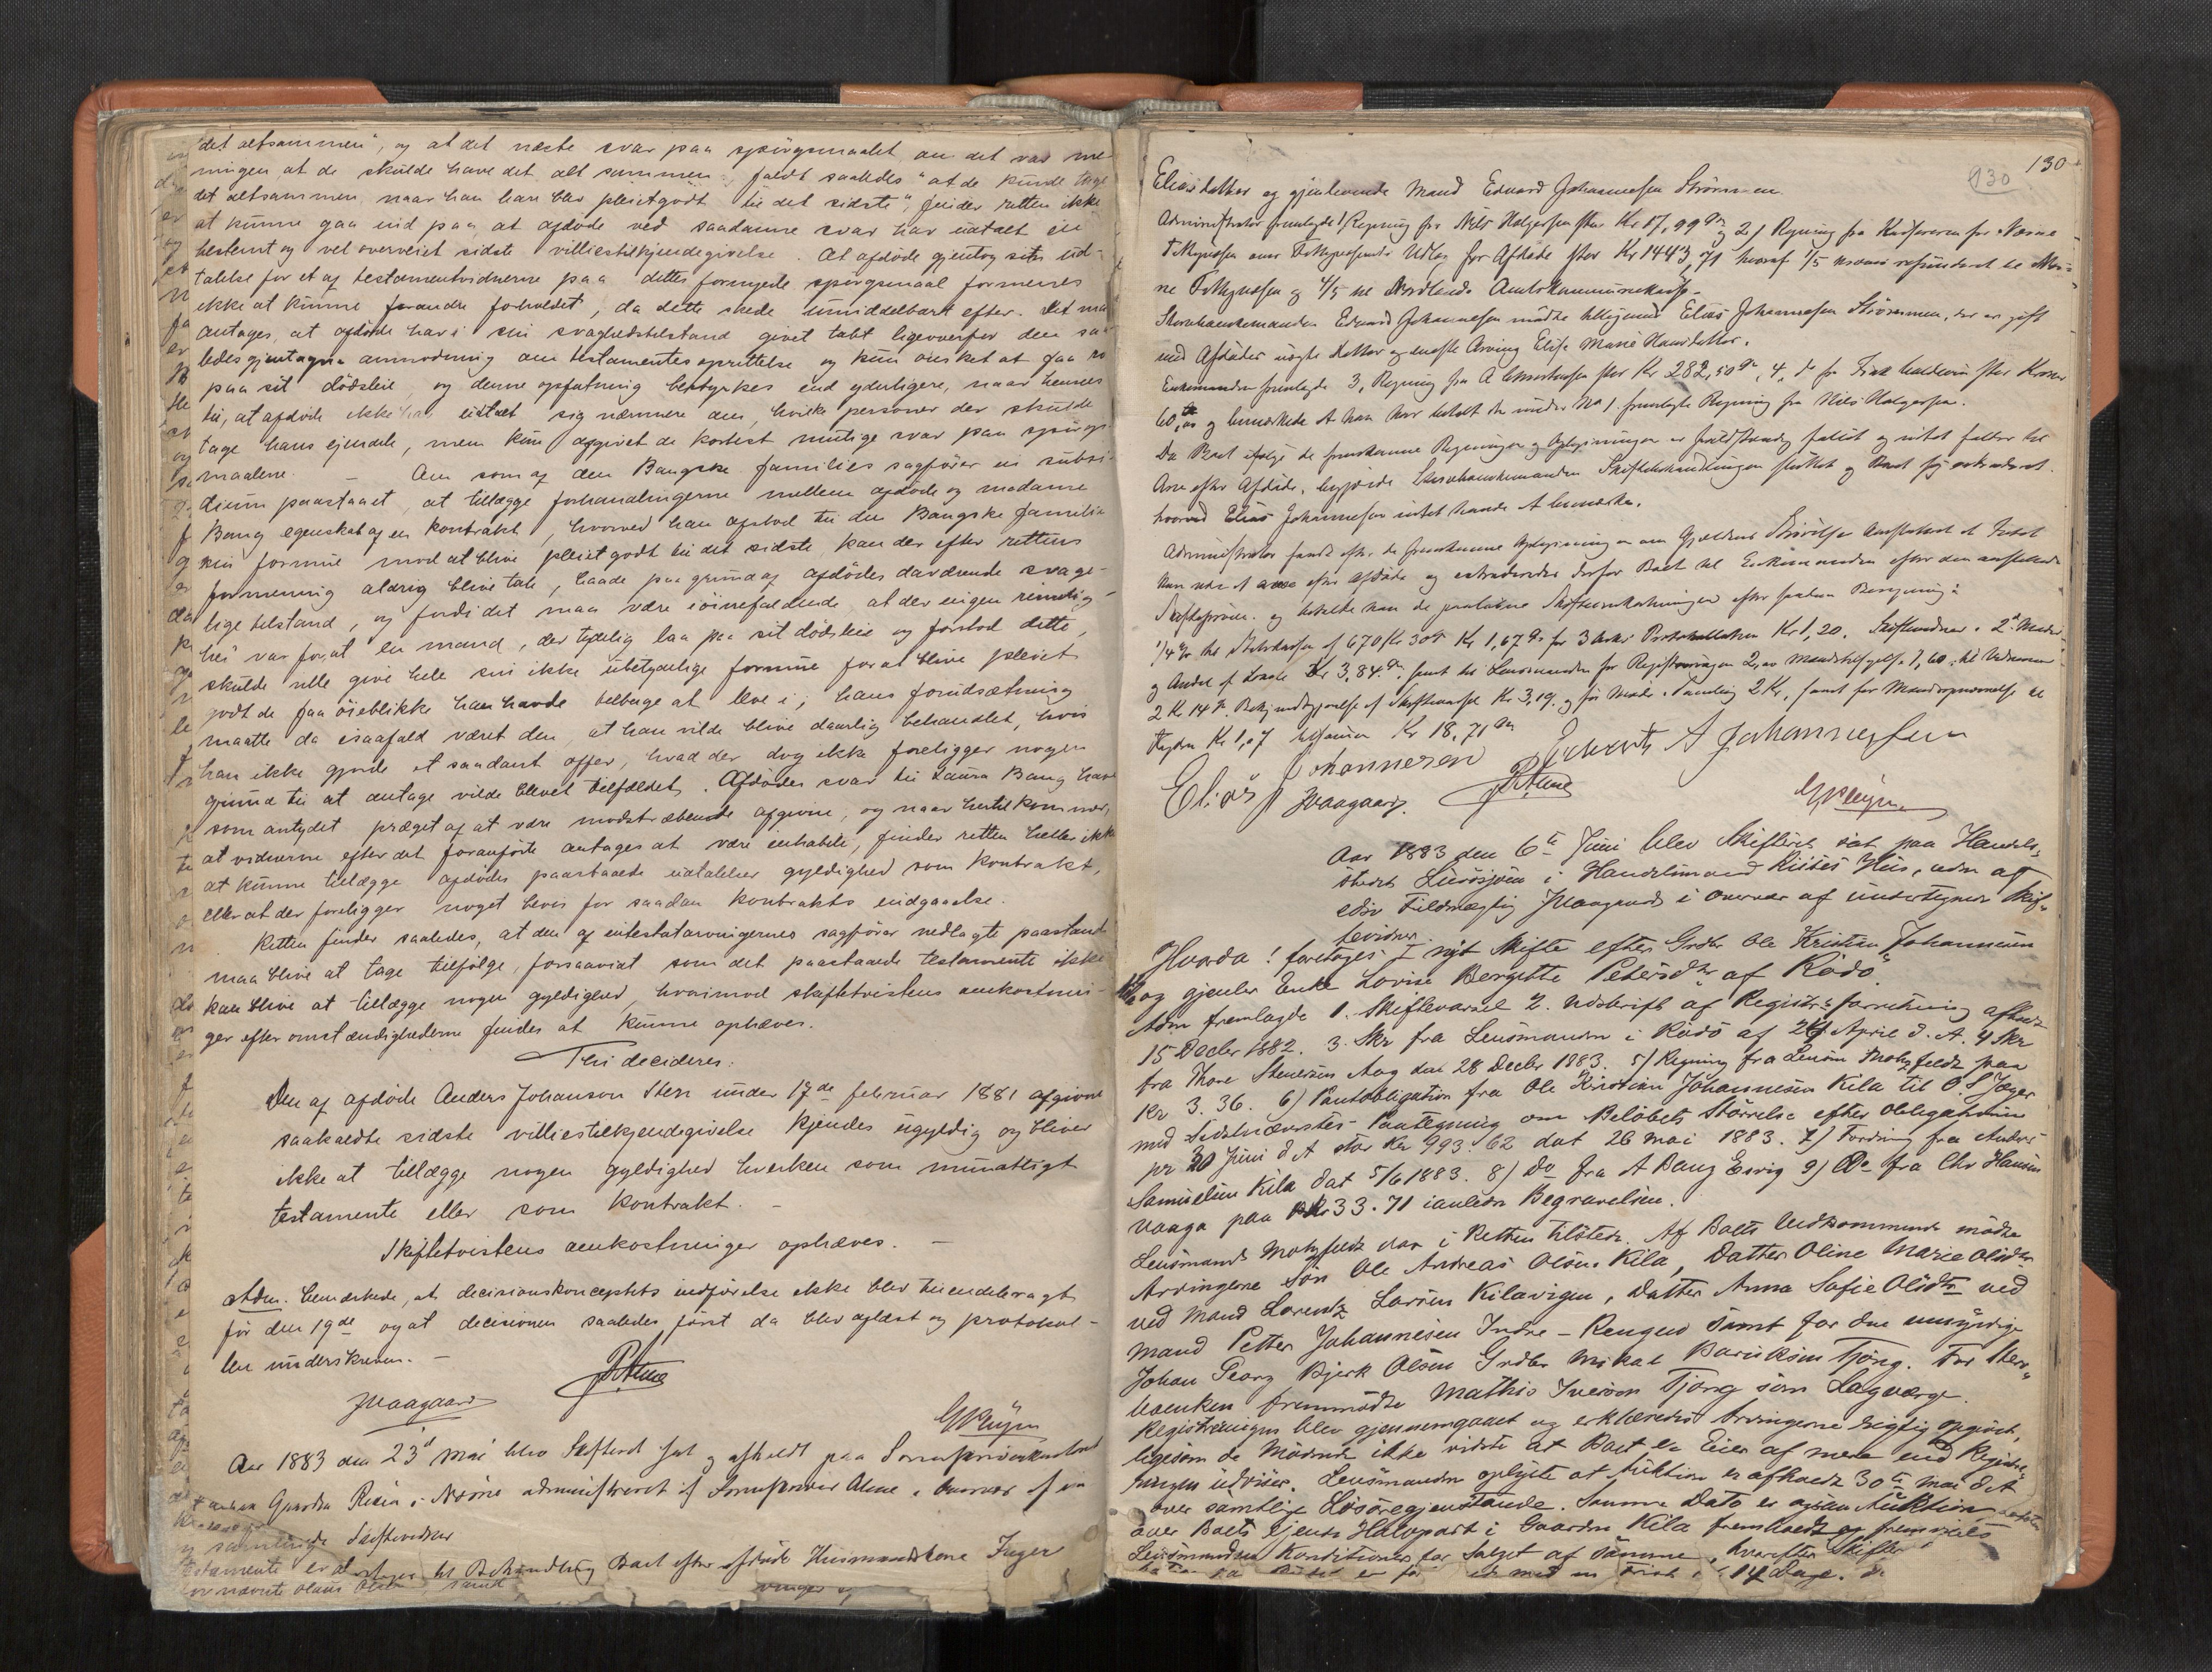 det altsammen", og at det næste svar paa spörgsmaalet, om det var me
ningen at de skulde have det alt sammen, faldt saaledes "at de kunde tage
det altsammen, naar han han blev pleiet godt til det sidste", finder retten ikke
at kunne gaa ind paa, at afdöde ved saadanne svar har udtalt en
bestemt og vel overveiet sidste villiestilkjendegivelse. At afdöde gjentog sin ud-
talelse for et af testamentvidnerne paa dettes fornyede spörgsmaal formenes
ikke at kunne forandre forholdet, da dette skede umiddelbart efter. Det maa
antages, at afdöde har i sin svaghedstilstand givet tabt ligeoverfor den saa
ledes gjentagne anmodning om testamentes oprettelse og kun önsket at faa ro
paa sit dödsleie, og denne opfatning bestyrkes end yderligere, naar hennes
til, at afdöde ikke har udtalt sig nærmere om, hvilke personer der skulde
tage hans eiendele, men kun afgivet de kortest mulige svar paa spörgs-
maalene. - Om som af den Bangske families sagförer in subsi-
dium paastaaet, at tillægge forhandlingerne mellem afdöde og madame
Bang egenskab af en kontrakt, hvorved han afstod til den Bangske familie
sin formue mod at blive pleiet godt til det sidste, kan der efter rettens
formening aldrig blive tale, baade paa grund af afdödes daværende svage-
lige tilstand, og fordi det maa være iöinefaldende, at der ingen rimelig-
hed var for, at en mand, der tydelig laa paa sit dödsleie og forstod dette,
skulde ville give hele sin ikke ubetydelige formue for at blive pleiet
godt de faa öieblikke han havde tilbage at leve i; hans forudsætning
maatte da isaafald været den, at han vilde blive daarlig behandlet, hvis
han ikke gjorde et saadant offer, hvad der dog ikke foreligger nogen
grund til at antage vilde blevet tilfældet. Afdödes svar til Laura Bang har
som antydet præget af at være modstræbende afgivne, og naar hertil kommer,
at vidnerne efter det foranförte antages at være inhabile, finder retten heller ikke
at kunne tillægge afdödes paastaaede udtalelser gyldighed som kontrakt,
eller at der foreligger noget bevis for saadan kontrakts indgaaelse.
Retten finder saaledes, at den af intestatarvingernes sagförer nedlagte paastand
maa blive at tage tilfölge, forsaavidt som det paastaaede testamente ikke
kan blive at tillægge nogen gyldighed, hvorimod skiftetvistens omkostnin-
ger efter omstændighederne findes at kunne ophæves.
Thi decideres:
Den af afdöde Anders Johanson Sten under 17de februar 1881 afgivne
saakaldte sidste villiestilkjendegivelse kjendes ugyldig og bliver
ikke at tillægge nogen gyldighed hverken som mundtligt
testamente eller som kontrakt. -
Skiftetvistens omkostninger ophæves. -
Adm. bemærkede, at decisionskonceptets indförelse ikke blev tilendebragt
för den 19de og at decisionen saaledes först da blev oplæst og protokol-
len underskreven. -
JWaagaard
Aar 1883 den 23d Mai blev Skifteret sat og afholdt paa Sorenskriverkontoret
Gaarden Risan i Næsne administreret af Sorenskriver Alme i Overvær af
samtlige Skiftevidner
til Behandling Boet efter afdöde Husmandskone Inger
130
130
Eliasdatter og gjenlevende Mand Edvard Johannesen Strömmen
Administrator fremlagde 1/ Regning fra Nils Holgersen stor Kr 17,99 Ör og 2/ Regning fra Kassereren for Næsne
Fattigvæsen over Fattigvæsenets Udlæg for Afdöde stor Kr 1443,71 hvoraf 1/5 refunderet til Næs-
ne Fattigvæsen og 4/5 til Nordlands Amtskommunekasse.
Sterbboenkemanden Edvard Johannesen mödte tilligemed Elias Johannesen Strömmen, der er gift
med Afdödes Datter og eneste Arving Elise Marie Hansdatter.
Enkemanden fremlagde 3, Regning fra A Christensen stor Kr 282,50 Ör, 4, do fra stor Kroner
60, og bemærkede at han har betalt den under No 1 fremlagte Regning fra Nils Holgersen.
Da Boet ifölge de fremkomne Regninger og Oplysninger er fuldstændig fallit og intet falder til
Arv efter Afdöde, begjærede Sterbboenkemanden Skiftebehandlingen sluttet og Boet sig extraderet.
hvorved Elias Johannesen intet havde at bemærke.
Administrator fandt efter de fremkomne Oplysninger om Gjældens Störrelse at Intet
kan være at arve efter Afdöde og extraderedes derfor Boet til Enkemanden efter den anförte
og betalte han de paalöbne Skifteomkostninger efter saadan Beregning:
1/4 % til Statskassen af 670 Kr 30 Ör Kr 1,67 Ör for 3 Arks Protokollation Kr 1,20. Skiftevidner
og Andel af Kr 3,84 Ör, samt til Lensmanden for Registreringen 2,
2 Kr 14 Ör. Bekjendtgjörelse af Kr 3,19. og for Möde 2 Kr, samt for
Kr 1,07 tilsammen Kr 18,71 Ör
Elias Johannesen Edvard A Johannesen
JWaagaard.
Aar 1883 den 6te Juni blev Skifteret sat paa Handels-
stedet Lurösjöen i Handelsmand Riises Hus, adm af
edsv Fuldmægtig JWaagaard i Overvær af undertegnede Skif-
tevidner
Hvorda! foretoges I nyt Skifte efter Grdbr Ole Kristian Johannesen
og gjenlev Enke Lovise Bergitte Petersdtr af Rödö.
Adm fremlagde 1. Skiftevarsel 2. Udskrift af Registr:s forretning afholdt
15 Decbr 1882. 3. Skr fra Lensmanden i Rödö af 24 April d. A. 4 Skr
fra Thore Stenersen Aag dat 28 Decbr 1883. 5/ Regning fra Lensm Motzfeldt paa
Kr 3. 36. 6) Pantobligation fra Ole Kristian Johannesen Kila til O. S. Jæger
med Sidstnævntes Paategning om Belöbets Störrelse efter Obligationen
pr 20 Juni d A stor Kr 993. 62 dat 26 Mai 1883. 7) Fordring fra Anders
Samuelsen Kila dat 5/6 1883. 8) Do fra A Bang Esvig 9) Do fra Chr Hansen
Vaaga paa Kr 33. 71 ianledn Begravelsen.
Lensmand Motzfeldt var i Retten tilstede. Af Boets Vedkommende mödte
Arvingerne Sön Ole Andreas Olsen Kila, Datter Oline Marie Olsdtr
ved Mand Lorentz Larsen Kilavigen, Datter Anna Sofie Olsdtr ved
Mand Petter Johannesen Indre-Renguö samt for den umyndige
Johan Georg Bjerk Olsen Grdbr Mikal Tjong. For Sterv-
boenken fremmödte Mathis Iversen Tjong som Lagværge.
Registreringen blev gjennemgaaet og erklæredes Arvingerne rigtig opgjört,
ligesom de Mödende ikke vidste at Boet er Eier af mere end Registre-
ringen udviser. Lensmanden oplyste at Auktion er afholdt 30te Mai d A
over samtlige Lösöregjenstande. Samme Dato er ogsaa Auktion
over Boets eiende Halvpart i Gaarden Kila fremholdt og fremviste
Lensmanden Konditioner for Salget af samme, hvorefter Skifte-
14 Dage.